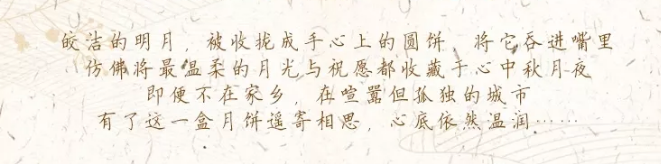 皎洁的明月，被收拢成手心上的圆饼、将它吞进嘴里
仿佛将最温柔的月光与祝愿都收藏于心中秋月夜
即便不在家乡，在喧嚣但孤独的城市
有了这一盒月饼遥寄相思，心底依然温润……